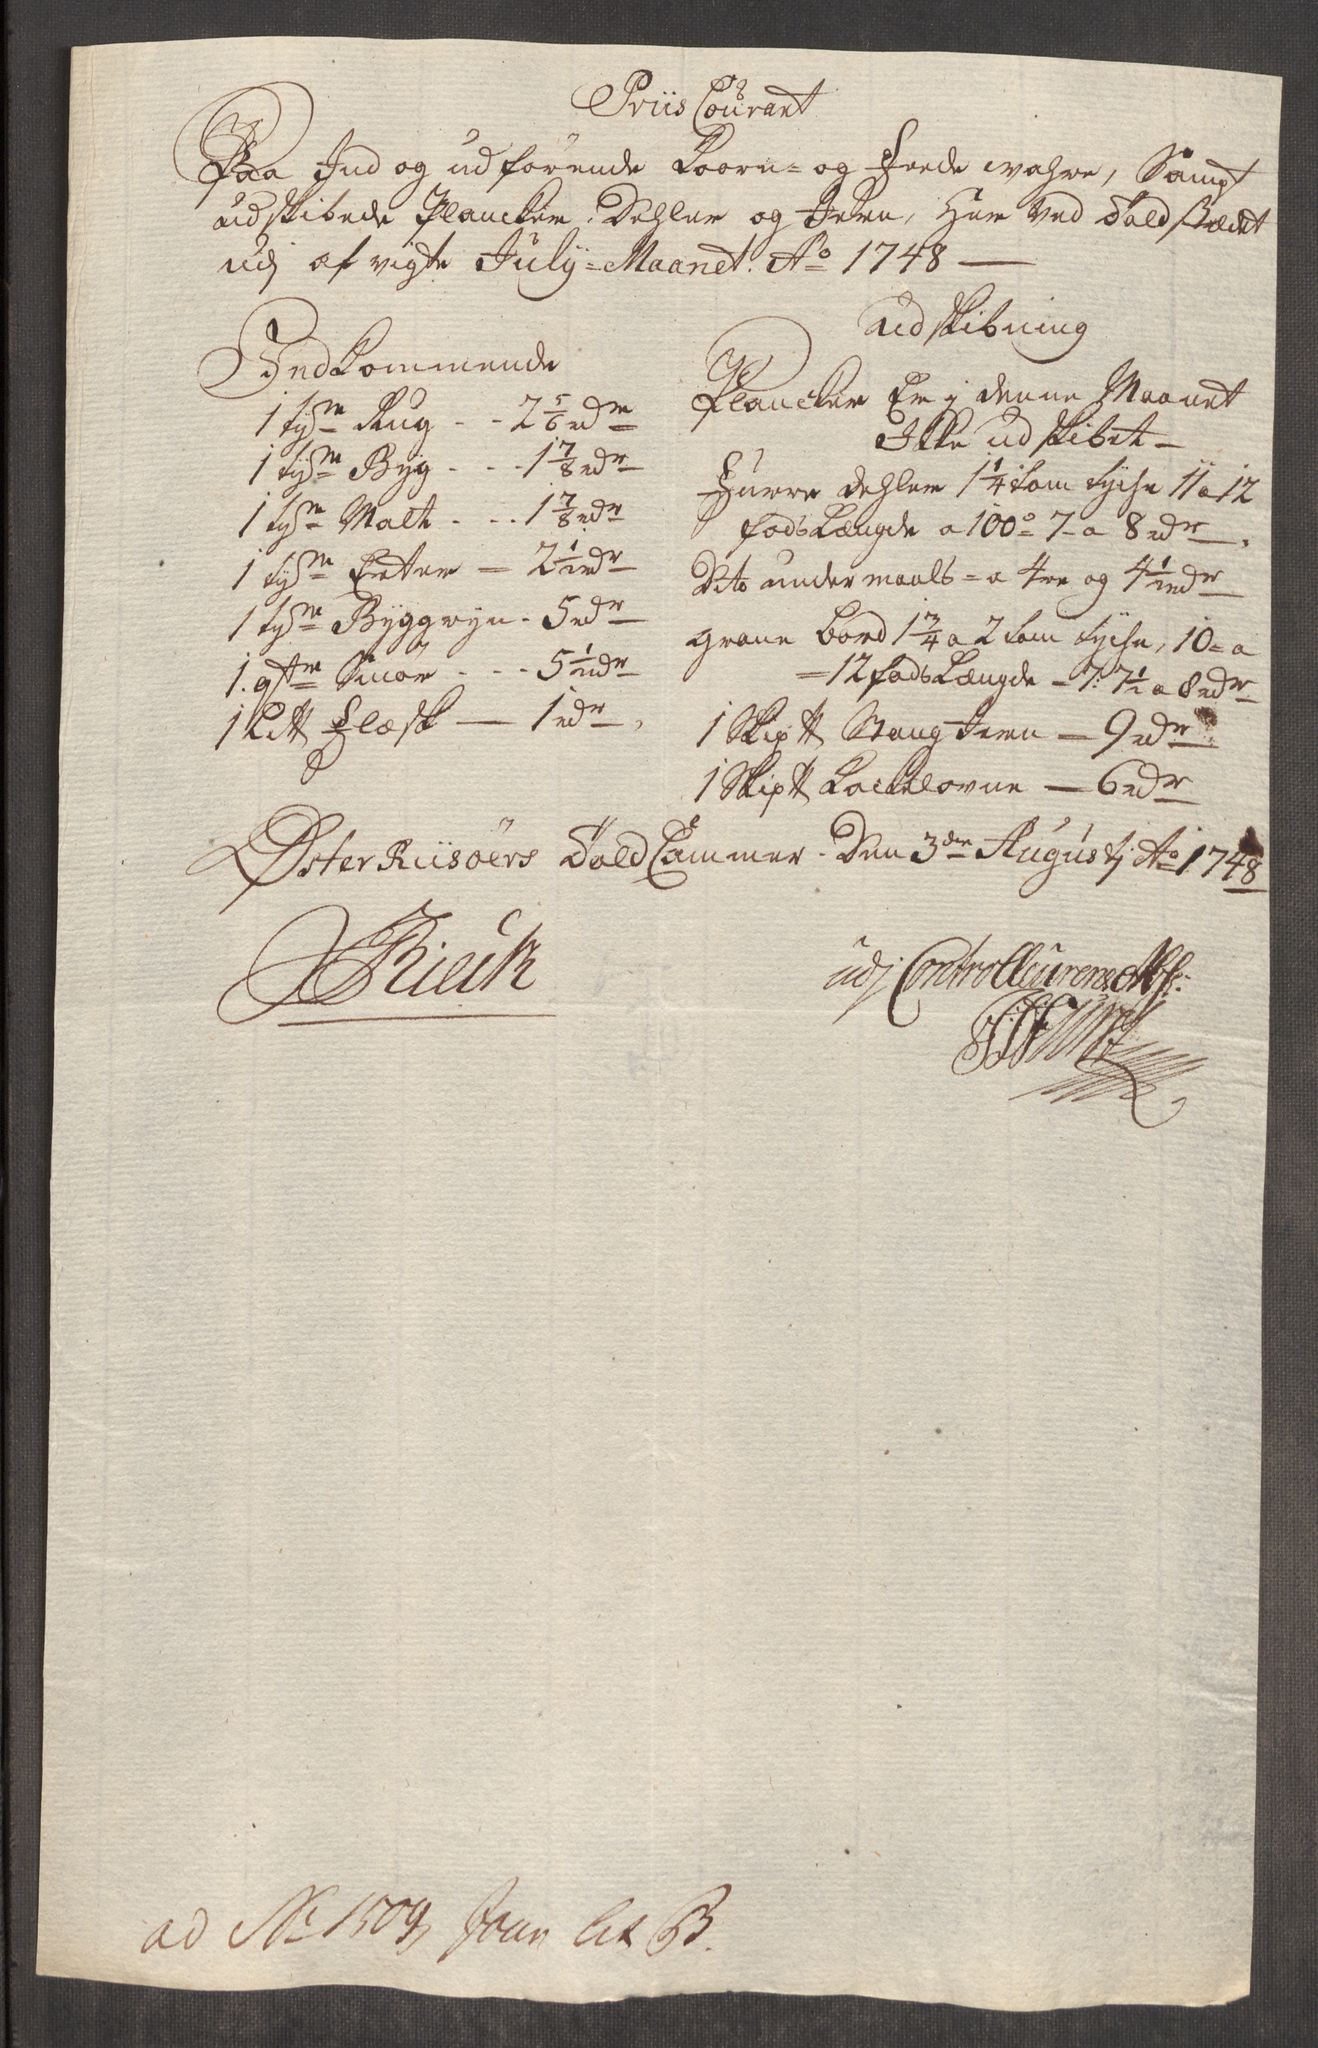 Priis Courant
Paa Ind og udförende Koorn- og Feede wahre, Sampt
udskibede Plancker, Dehler og Jern, Her Ved Toldstædet
udj afvigte July-Maanet. Ao 1748
IndKommende
1 tyne Rug - - 2 5/6 rdr
1 tyne Byg - - - 1 7/8 rdr
1 tyne Malt - - - 1 7/8 rdr
1 tyne Erter = 2 1/2 rdr
1 tyne Byggryn - 5 rdr
1 qtr Smör - - - 5 1/2 rdr
1 L℔ Flæsk — 1 rdr
udskibning
Plancker Er j denne Maanet
Ikke udskibet
Furre dehler 1 1/4 tom tyche 11 a 12
fods Længde a 100 = 7 a 8 rdr
Dito undermaals = a 4re og 4 1/2 rdr
grane bord 1 3/4 a 2 tom tyche, 10 = a
= 12 fods Længde - 7: 7 1/2 a 8 rdr
1 Skip℔ Stang Jern — 9 rdr
1 Skip℔ Kackelovne — 6 rdr
ØsterRiisöers Told Cammer - Den 3de Augustj Ao 1748
Rieck
udj Controlleurens
ad No 1509 lit B.